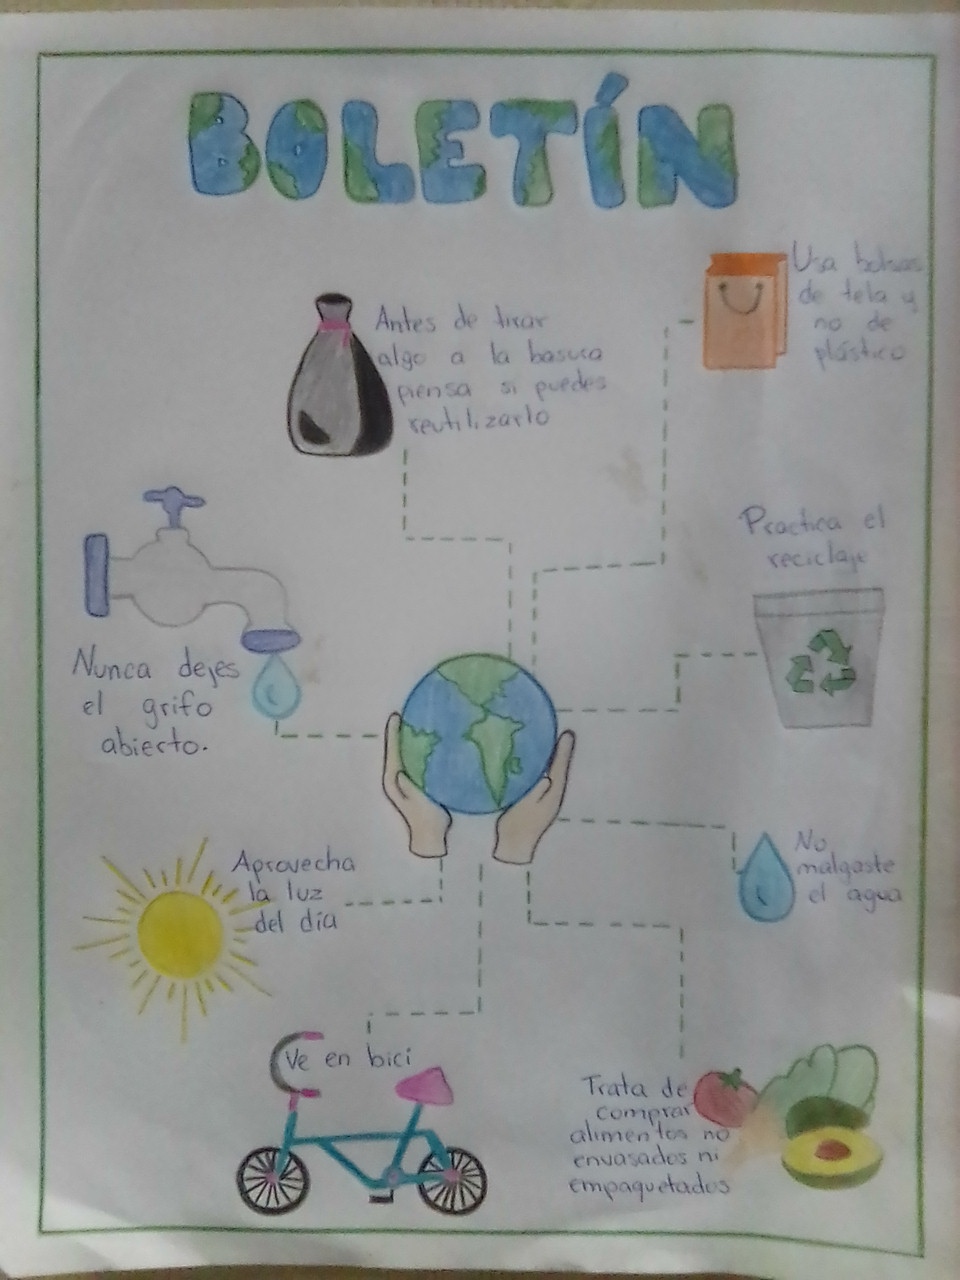 BOLETÍN
Antes de tirar
algo a la basura
piensa si puedes
reutilizarlo
Usa bolsas
de tela y
no de
plástico
Practica el
reciclaje
Nunca dejes
el grifo
abierto.
Aprovecha
la luz
del día
No
malgaste
el agua
Ve en bici
Trata de
comprar
alimentos no
envasados ni
empaquetados